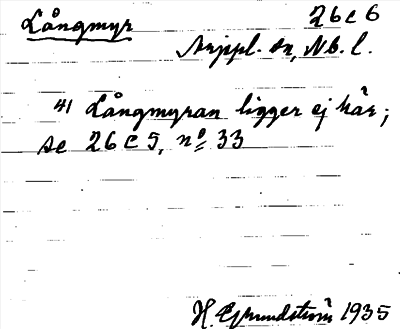 Långmyr 26 C 6
Arjepl. sn, Nb. l.
41 Långmyran ligger ej här;
se 26 C 5, nº 33
H. 1935